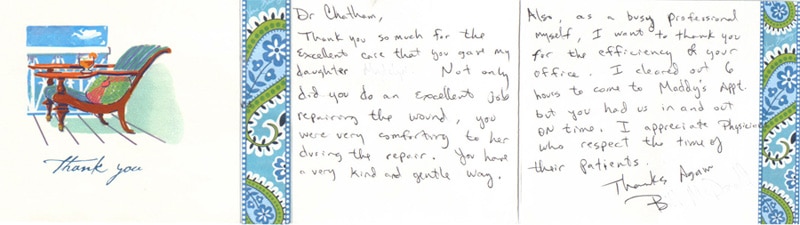 Thank you
Dr Chatham,
Thank you so much for the
Excellent care that you gave my
daughter
Not only
did you do an Excellent job
repairing the wound, you
were very comforting to her
during the repair. You have
a very kind and gentle way.
Also, as a busy professional
myself, I want to thank you
for the efficiency of your
office. I cleared out 6
hours to come to Maddy's Appt.
but you had us in and out
ON time. I appreciate Physicians
who respect the time of
their patients.
Thanks Again
B